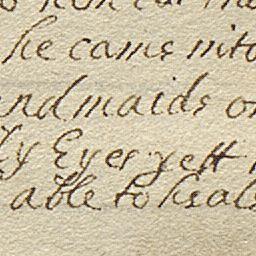 he came into
and maids or
Eyes yett
able to heale